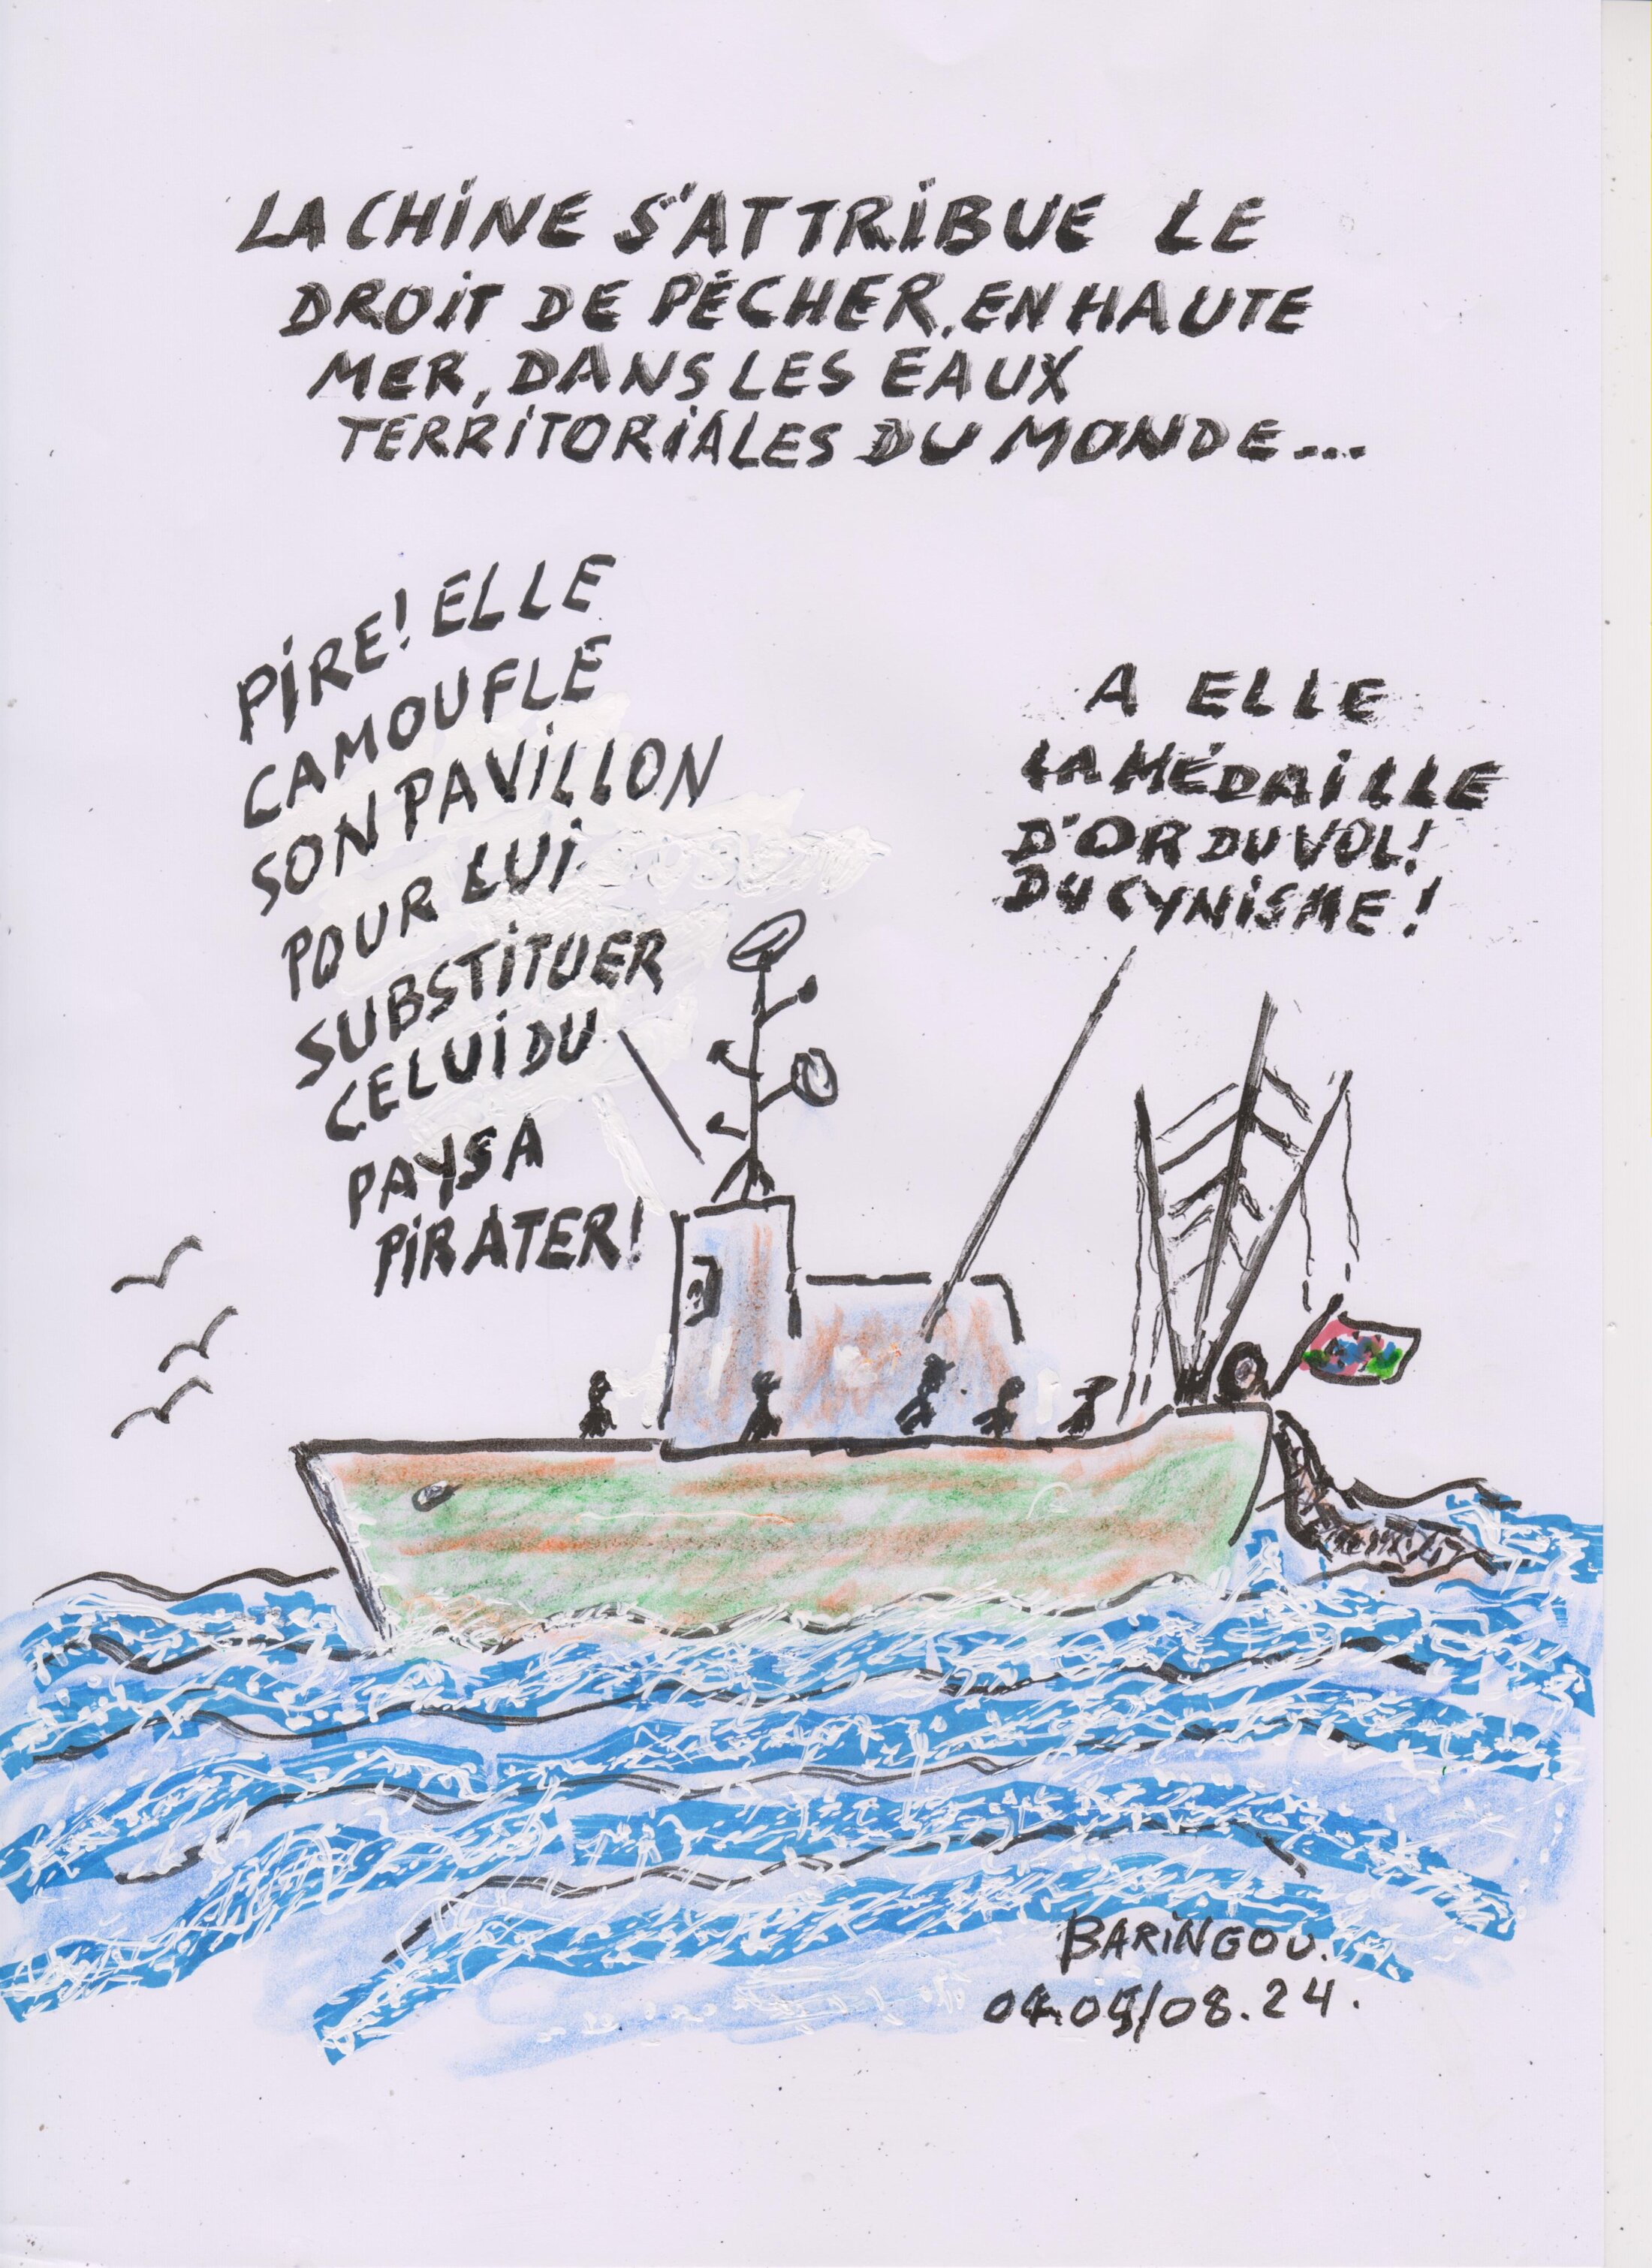 LA CHINE S'ATTRIBUE LE
DROIT DE PÊCHER, EN HAUTE
MER, DANS LES EAUX
TERRITORIALES DU MONDE...
PIRE! ELLE
CAMOUFLE
SON PAVILLON
POUR LUI
SUBSTITUER
CELUI DU
PAYS A
PIRATER!
A ELLE
LA MÉDAILLE
D'OR DU VOL!
DU CYNISME!
BARINGOU.
/08.24.